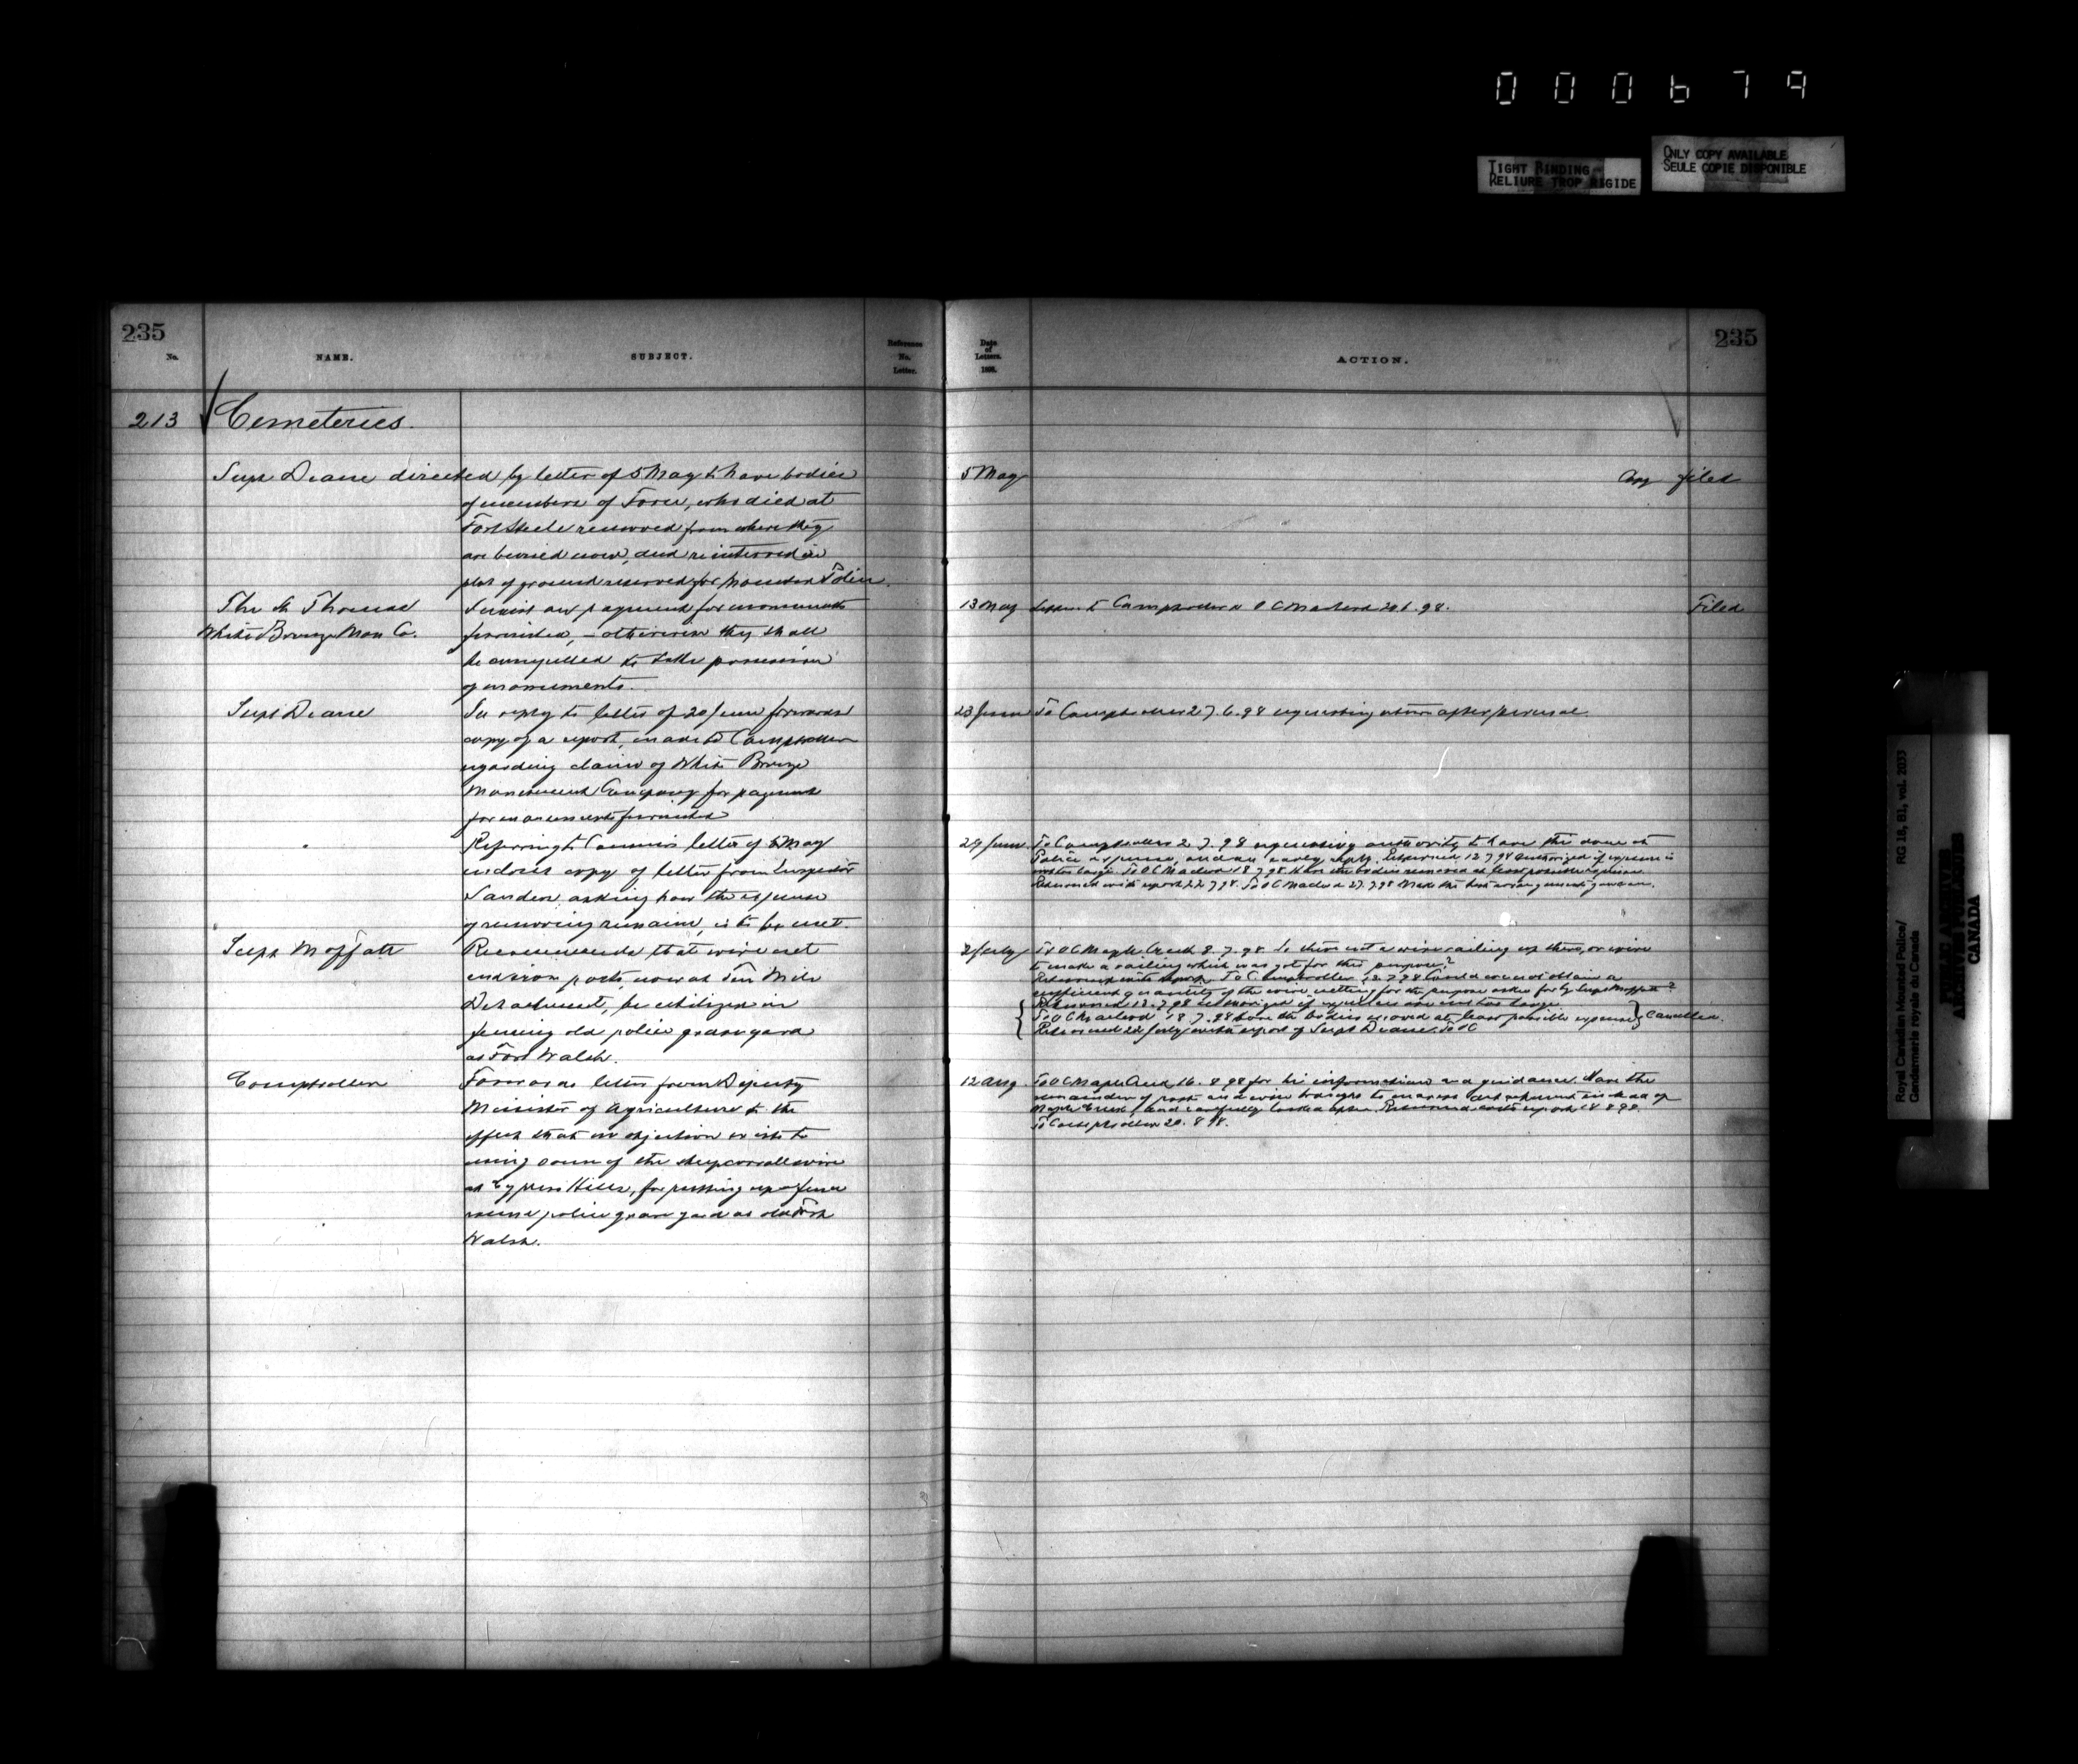 000679
TIGHT BINDING
RELIURE TROP RIGIDE
ONLY COPY AVAILABLE
SEULE COPIE DISPONIBLE
235
No.
NAME.
SUBJECT.
Reference
No.
Letter.
Date
of
Letters.
1898.
ACTION.
235
213 Cemeteries.
Supt Deane directed by letter of 5 May to have bodies
of members of Force, who died at
Fort Steele removed from where they
are buried now, and reinterred in
plot of ground reserved for Mounted Police.
5 May
Copy filed
The St Thomas
White Bronze Mon Co.
Insist on payment for monuments
furnished, - otherwise they shall
be compelled to take possession
of monuments.
13 May
to Comptroller OC Macleod 20.6.98.
Filed
Supt Deane
In reply to letter of 20 June forwards
copy of a report, made to Comptroller
regarding claim of White Bronze
Monument Company for payment
for monuments furnished
23 June To Comptroller 27.6.98 requesting return after perusal.
"
Referring to Commrs letter of 5 May
encloses copy of letter from Inspector
Sanders asking how the expense
of removing remains, is to be met.
29 June To Comptroller 2.7.98 requesting authority to have this done at
Police expense, and an early reply. Returned 12.7.98 authorized if expense is
not too large. To OC Macleod 18.7.98 Have the bodies removed at least possible expense.
Returned with report 22.7.98. To OC Macleod 27.7.98 Make the best arrangements you can.
Supt Moffatt
Recommends that wire net
and iron posts, now at Ten Mile
Detachment, be utilized in
fencing old police graveyard
at Fort Walsh.
2 July To OC Maple Creek 8.7.98 Is there not a wire railing up there, or wire
to make a railing which was got for this purpose?
Returned with report. To Comptroller 12.7.98 Could we not obtain a
sufficient quantity of the wire netting for the purpose asked for by Supt Moffatt?
Returned 12.7.98 authorized if expenses are not too large
To OC Macleod 18.7.98 have the bodies removed at least possible expense
Returned 22 July with report of Supt Deane. To OC
Cancelled.
Comptroller
Forwards letter from Deputy
Minister of Agriculture to the
effect that no objection exists to
using some of the sheep corral wire
at Cypress Hills, for putting up a fence
round police grave yard at old Fort
Walsh.
12 Aug. To OC Maple Creek 16.8.98 for his information and guidance. Have the
remainder of posts and wire brought to nearest detachment instead of
Maple Creek, and carefully looked after. Returned with report 18.8.98.
To Comptroller 20.8.98.
Royal Canadian Mounted Police/
Gendarmerie royale du Canada
RG 18, B1, vol. 2033
PUBLIC ARCHIVES
ARCHIVES PUBLIQUES
CANADA